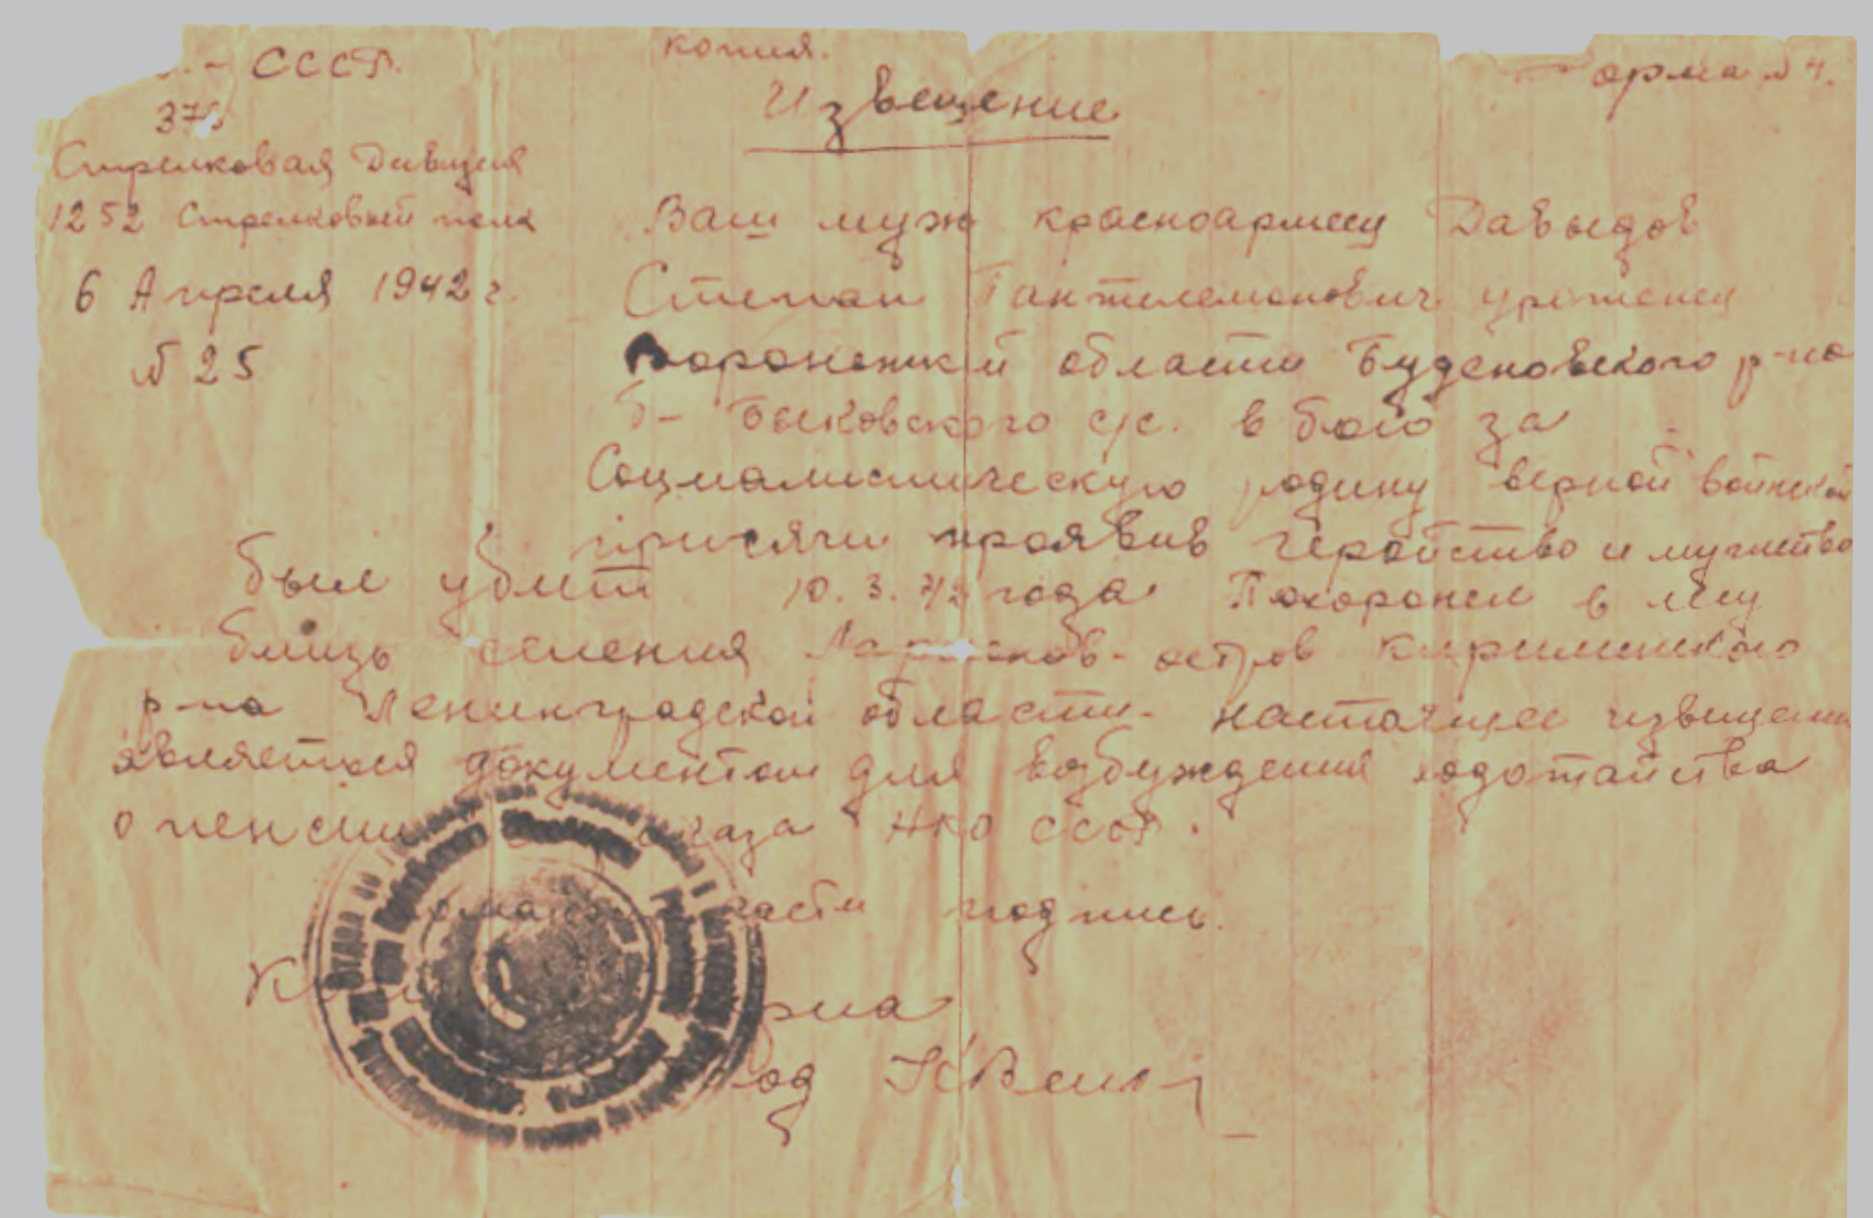 СССР.
копия.
орма №4.
Извещение
Стрелковая Дивизия
1252 Стрелковый полк
6 Апреля 1942 г.
№ 25
Ваш муж красноармеец Давыдов
Степан Пантелемонович уроженец
Воронежкой области Буденовского р-на
Б- Быковского с/с. в бою за
Социалистическую родину верной воинской
присяги проявив геройство и мужество
был убит 10. 3. 42 года Похоронен в лесу
близь селения остров Киришинского
р-на Ленинградской области. настоящее извещение
является документом для возбуждения ходотайства
о пенсии каза НКО СССР.
части подпись.